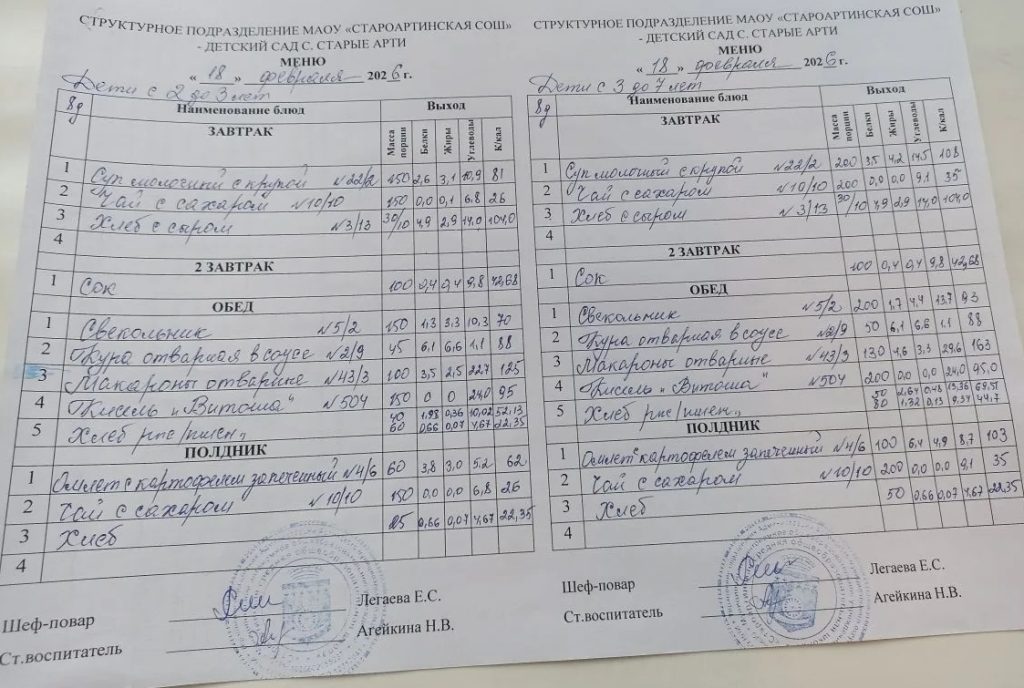 СТРУКТУРНОЕ ПОДРАЗДЕЛЕНИЕ МАОУ «СТАРОАРТИНСКАЯ СОШ»
- ДЕТСКИЙ САД С. СТАРЫЕ АРТИ
МЕНЮ
« 18 » февраля 2026 г.
Дети с 2 до 3 лет
8д Наименование блюд Выход
ЗАВТРАК Масса порции Белки Жиры Углеводы К/кал
1 Суп молочный с крупой №22/2 150 2,6 3,1 10,9 81
2 Чай с сахаром №10/10 150 0,0 0,1 6.8 26
3 Хлеб с сыром №3/13 30/10 4,9 2,9 17,0 104,0
4
2 ЗАВТРАК
1 Сок 100 0,4 0,4 9,8 42,68
ОБЕД
1 Свекольник №5/2 150 1,3 3,3 10,3 70
2 Кура отварная в соусе №2/9 45 6,1 6,6 1,1 88
3 Макароны отварные №43/3 100 3,5 2,5 22,7 125
4 Кисель „Витоша" №504 150 0 0 24,0 95
5 Хлеб рж/пшен,, 40 1,98 0,36 10,02 52,13
60 0,66 0,07 4,67 22,35
ПОЛДНИК
1 Омлет с картофелем запеченный №4/6 60 3,8 3,0 5,2 62
2 Чай с сахаром №10/10 150 0,0 0,0 6,8 26
3 Хлеб 25 0,66 0,07 4,67 22,35
4
Шеф-повар Легаева Е.С.
Ст.воспитатель Агейкина Н.В.
СТРУКТУРНОЕ ПОДРАЗДЕЛЕНИЕ МАОУ «СТАРОАРТИНСКАЯ СОШ»
- ДЕТСКИЙ САД С. СТАРЫЕ АРТИ
МЕНЮ
« 18 » февраля 2026 г.
Дети с 3 до 7 лет
8д Наименование блюд Выход
ЗАВТРАК Масса порции Белки Жиры Углеводы К/кал
1 Суп молочный с крупой №22/2 200 3,5 4,2 14,5 108
2 Чай с сахаром №10/10 200 0,0 0,0 9,1 35
3 Хлеб с сыром №3/13 30/10 4,9 2,9 17,0 104,0
4
2 ЗАВТРАК
1 Сок 100 0,4 0,4 9,8 42,68
ОБЕД
1 Свекольник №5/2 200 1,7 4,4 13,7 93
2 Кура отварная в соусе №2/9 50 6,1 6,6 1,1 88
3 Макароны отварные №43/3 130 4,6 3,3 29,6 163
4 Кисель „Витоша" №504 200 0,0 0,0 24,0 95,0
5 Хлеб рж/пшен,, 50 2,64 0,48 13,36 69,51
80 1,32 0,13 9,34 44,7
ПОЛДНИК
1 Омлет с картофелем запеченный №4/6 100 6,4 4,9 8,7 103
2 Чай с сахаром №10/10 200 0,0 0,0 9,1 35
3 Хлеб 50 0,66 0,07 4,67 22,35
4
Шеф-повар Легаева Е.С.
Ст.воспитатель Агейкина Н.В.